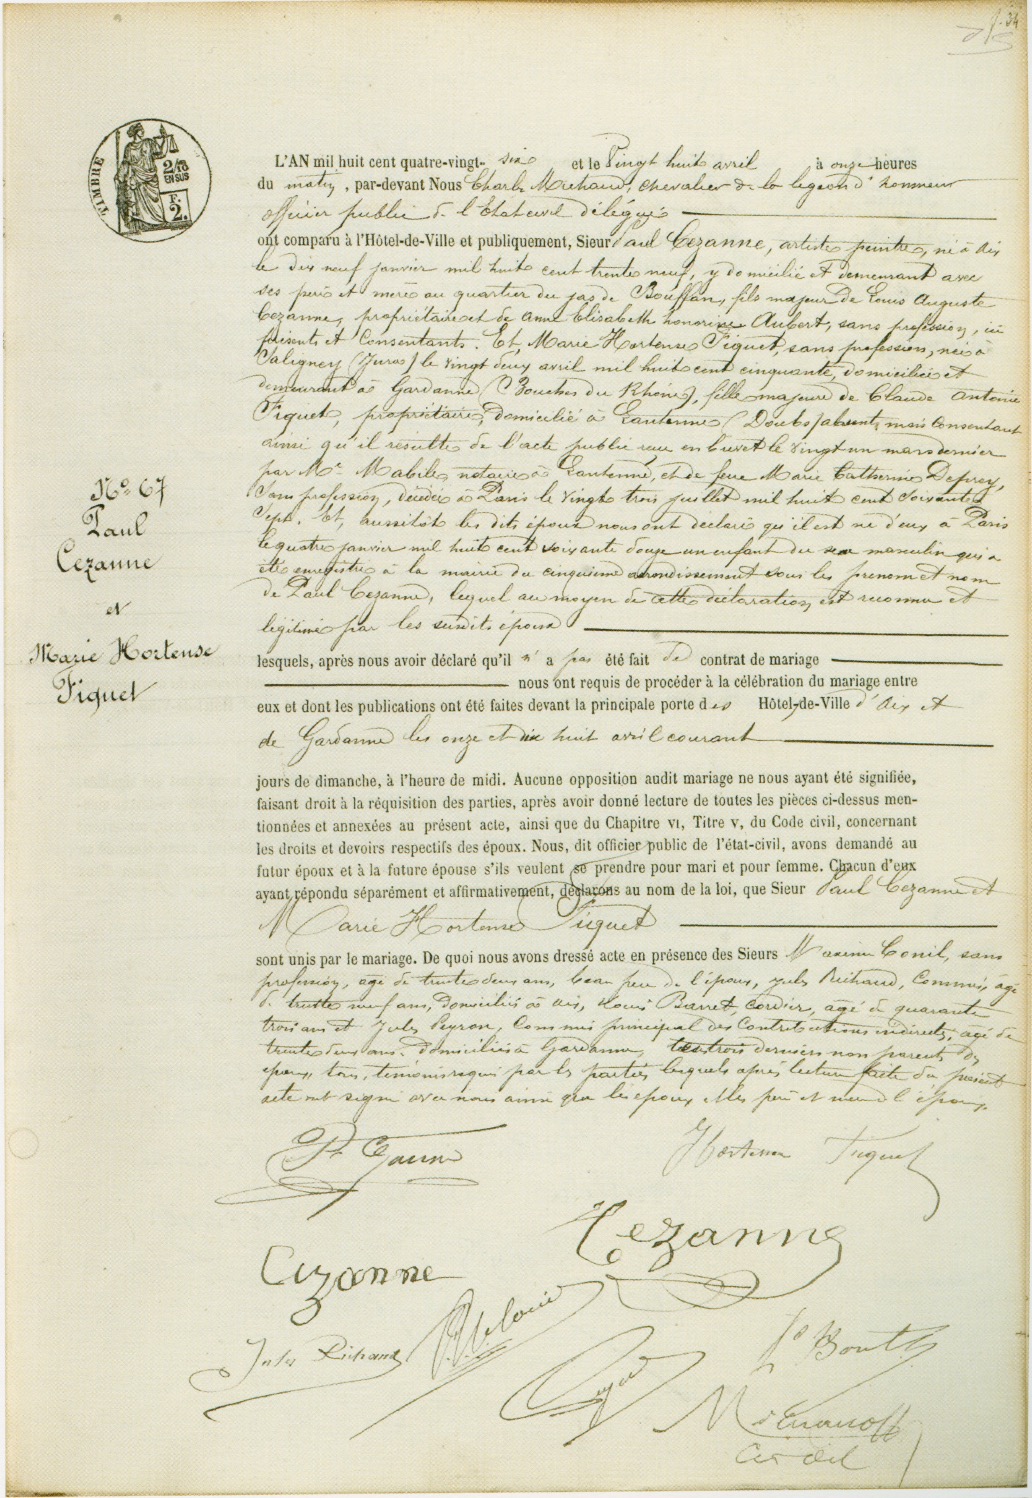 34
TIMBRE
2/10
EN SUS
F.
2.
L'AN mil huit cent quatre-vingt- six et le Vingt huit avril à onze heures
du matin, par-devant Nous Charles chevalier de la legion d'honneur
officier public de l'Etat civil délégué
ont comparu à l'Hôtel-de-Ville et publiquement, Sieur Paul Cezanne, artiste peintre, né à Aix
le dix neuf janvier mil huit cent trente neuf, y domicilié et demeurant avec
ses père et mère au quartier du jas de Bouffan, fils majeur de Louis Auguste
Cezanne, propriétaire et de Anne Elisabeth honorine Aubert, sans profession, ici
présents et Consentants. Et, Marie Hortense Fiquet, sans profession, née à
Saligney (Jura) le vingt deux avril mil huit cent cinquante, domiciliée et
demeurant à Gardanne (Bouches du Rhône), fille majeure de Claude Antoine
Fiquet, propriétaire, domicilié à Lantenne (Doubs) absent, mais Consentant
ainsi qu'il résulte de l'acte public reçu en brevet le vingt un mars dernier
par Me Mabile notaire à Lantenne, et de feue Marie Catherine Deprey,
Sans profession, décédée à Paris le vingt trois juillet mil huit cent Soixante
Sept. Et, aussitôt les dits époux nous ont déclaré qu'il est né d'eux à Paris
le quatre janvier mil huit cent soixante douze un enfant du sexe masculin qui a
été enregistré à la mairie du cinquième arrondissement sous les prenom et nom
de Paul Cezanne, lequel au moyen de cette déclaration, est reconnu et
légitimé par les susdits époux
No 67
Paul
Cezanne
et
Marie Hortense
Fiquet
lesquels, après nous avoir déclaré qu'il n' a pas été fait de contrat de mariage
nous ont requis de procéder à la célébration du mariage entre
eux et dont les publications ont été faites devant la principale porte des Hôtel-de-Ville d'Aix et
de Gardanne les onze et dix huit avril courant
jours de dimanche, à l'heure de midi. Aucune opposition audit mariage ne nous ayant été signifiée,
faisant droit à la réquisition des parties, après avoir donné lecture de toutes les pièces ci-dessus men-
tionnées et annexées au présent acte, ainsi que du Chapitre VI, Titre V, du Code civil, concernant
les droits et devoirs respectifs des époux. Nous, dit officier public de l'état-civil, avons demandé au
futur époux et à la future épouse s'ils veulent se prendre pour mari et pour femme. Chacun d'eux
ayant répondu séparément et affirmativement, déclarons au nom de la loi, que Sieur Paul Cezanne et
Marie Hortense Fiquet
sont unis par le mariage. De quoi nous avons dressé acte en présence des Sieurs Maxime Conil, sans
profession, agé de trente deux ans, beau frère de l'époux, Jules Richaud, Commis, agé
de trente neuf ans, domiciliés à Aix, Louis Barret, cordier, agé de quarante
trois ans et Jules Peyron, Commis principal des Contributions indirects, agé de
trente deux ans, domiciliés à Gardanne, les trois derniers non parents des
époux, tous, témoins requis par les parties lesquels après lecture faite du présent
acte ont signé avec nous ainsi que les époux et les père et mère de l'époux.
Hortense Fiquet
Cezanne
Cezanne
Jules Richaud